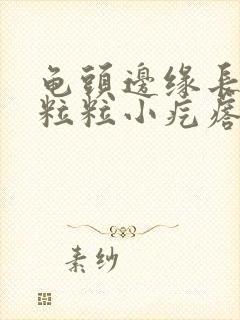 龟頭邊缘長
粒粒小疙瘩
素纱